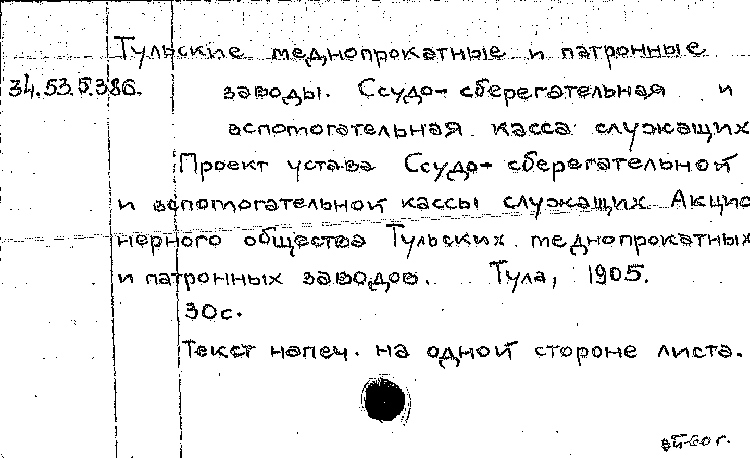 Тульские меднопрокатные и патронные
34.53.5.386. заводы. Ссудо-сберегательная и
вспомогательная касса служащих
Проект устава Ссудо-сберегательной
и вспомогательной кассы служащих Акцио
нерного общества Тульских меднопрокатных
и патронных заводов. Тула, 1905.
30с.
Текст напеч. на одной стороне листа.